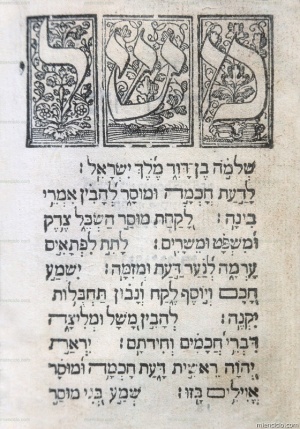 משלי
שְׁלֹמֹה בֶן דָּוִד מֶלֶךְ יִשְׂרָאֵל׃
לָדַעַת חָכְמָה וּמוּסָר לְהָבִין אִמְרֵי
בִינָה׃ לָקַחַת מוּסַר הַשְׂכֵּל צֶדֶק
וּמִשְׁפָּט וּמֵשָׁרִים׃ לָתֵת לִפְתָאיִם
עָרְמָה לְנַעַר דַּעַת וּמְזִמָּה׃ יִשְׁמַע
חָכָם וְיוֹסֶף לֶקַח וְנָבוֹן תַּחְבֻּלוֹת
יִקְנֶה׃ לְהָבִין מָשָׁל וּמְלִיצָה
דִּבְרֵי חֲכָמִים וְחִידֹתָם׃ יִרְאַת
יְהוָה רֵאשִׁית דָּעַת חָכְמָה וּמוּסָר
אֱוִילִים בָּזוּ׃ שְׁמַע בְּנִי מוּסַר
miensicio.com